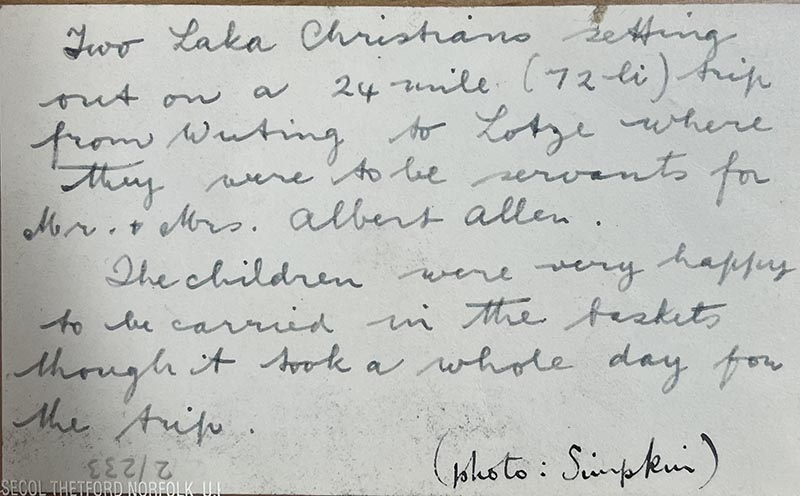 Two Laka Christians setting
out on a 24 mile (72 li) trip
from Wuting to Lotze where
they were to be servants for
Mr. + Mrs. Albert Allen.
The children were very happy
to be carried in the baskets
though it took a whole day for
the trip.
(photo: Simpkin)
2/233
SECOL THETFORD NORFOLK U.I